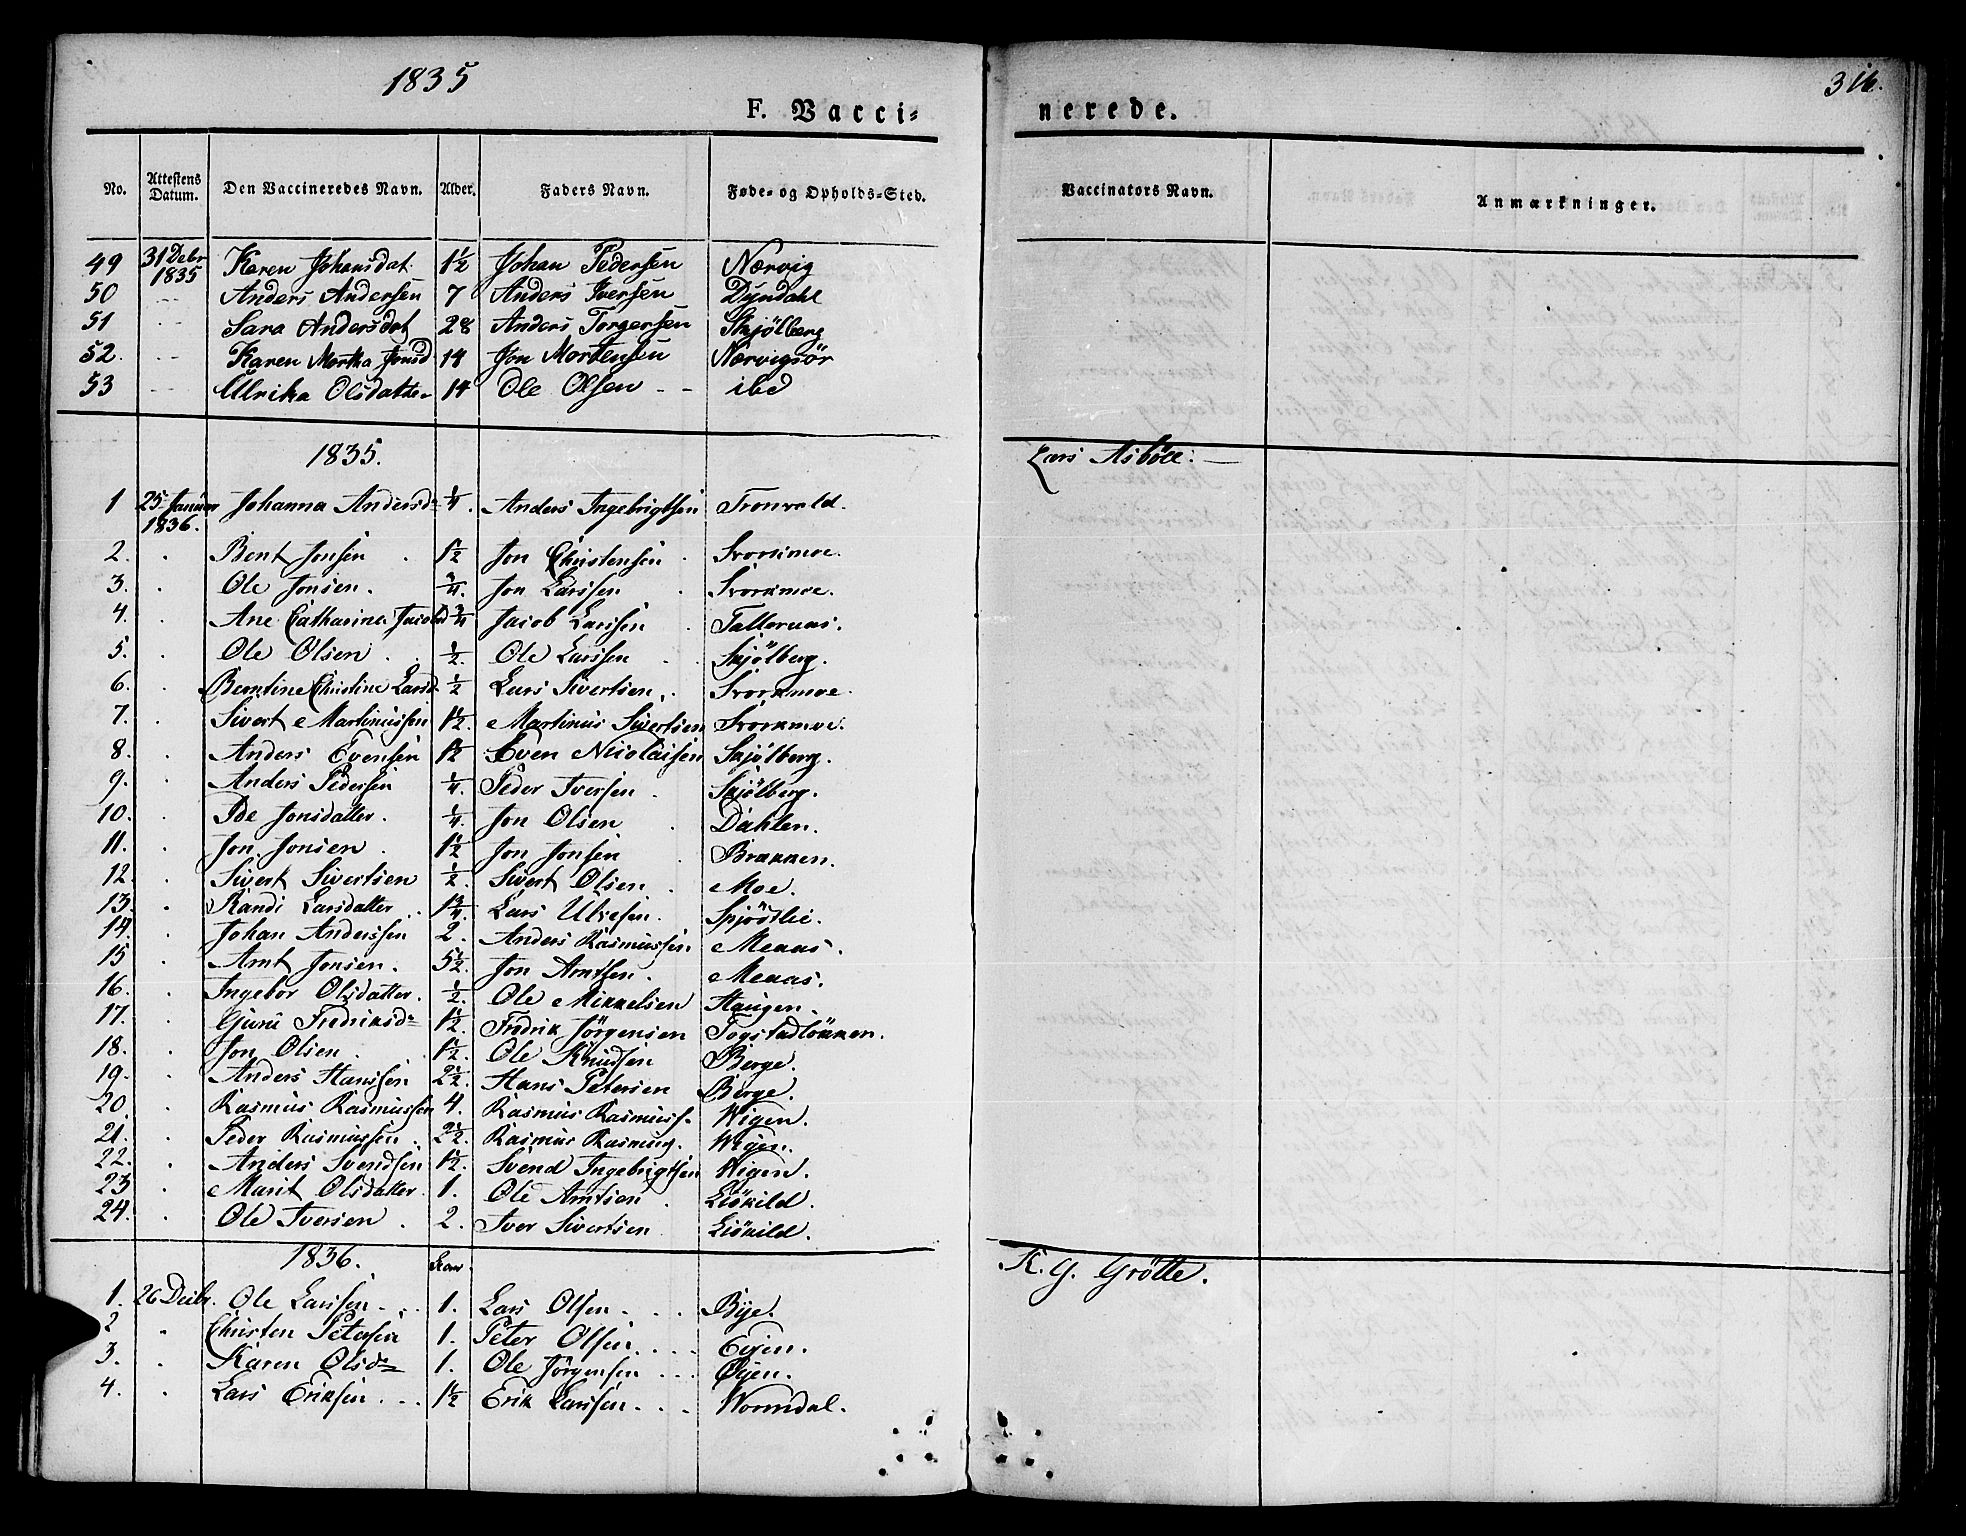 1835
F. Vacci-
nerede.
316.
No. Attestens Datum. Den Vaccineredes Navn. Alder. Faders Navn. Føde- og Opholds-Sted. Vaccinators Navn. Anmærkninger.
49 31 Debr 1835 Karen Johansdat. 1½ Johan Pedersen Nærvig
50 -- Anders Andersen 7 Anders Iversen Dyndahl
51 -- Sara Andersdat 28 Anders Torgersen Skjölberg
52. -- Karen Martha Jonsd 14 Jon Mortensen Nærvigsör
53 --- Ulrika Olsdatter 14 Ole Olsen -- ibd
1835. Lars Asböll:
1 25 Januar 1836. Johanna Andersd= ¼. Anders Ingebrigtsen Tronvold.
2. . Bent Jonsen . 1½ Jon Christensen . Svorkmoe.
3. . Ole Jonsen. ¾. Jon Larssen . Svorkmoe.
4. . Ane Catharina Jacobsd ¾ Jacob Larssen . Talleraas.
5. . Ole Olsen . ½. Ole Larssen . Skjölberg.
6. . Berntine Christine Larsd. ½ Lars Sivertsen. Svorkmoe.
7. . Sivert Martinussen 1½. Martinus Sivertsen Svorkmoe.
8. . Anders Evensen 1½ Even Nicolaisen Skjölberg.
9. . Anders Pedersen ¼. Peder Iversen . Skjölberg.
10. . Ide Jonsdatter. ¼. Jon Olsen . Dahlen.
11. . Jon Jonsen . 1½ Jon Jonsen . Brækken.
12. . Sivert Sivertsen ½. Sivert Olsen . Moe.
13. . Randi Larsdatter . 1¾. Lars Ulvesen. Spjötlie.
14. . Johan Anderssen 2. Anders Rasmussen Meaas.
15 . Arnt Jonsen. 5½. Jon Arntsen. Meaas.
16. . Ingebor Olsdatter. ½. Ole Mikkelsen Haugen.
17. . Guru Fredriksd= 1½. Fredrik Jörgensen Togstadlökken.
18. . Jon Olsen . 1½. Ole Knudsen Berge.
19. . Anders Hanssen 2½. Hans Petersen Berge.
20. . Rasmus Rasmussen 4. Rasmus Rasmuss. Wigen.
21. . Peder Rasmussen. 2½. Rasmus Rasmus. Wigen.
22. . Anders Svendsen 1½. Svend Ingebrigtsen Wigen.
23 . Marit Olsdatter. 1. Ole Arntsen . Liökild.
24. . Ole Iversen . 2. Iver Sivertsen Liökild.
1836. K. G. Grötte.
1. 26 Decbr. Ole Larssen - . . 1. Lars Olsen. . . . Bye.
2 . Christen Petersen 1. Peter Olsen. . . . Eyen.
3. . Karen Olsd= 1. Ole Jörgensen . . . Öyen.
4. . Lars Eriksen . . . 1½ Erik Larssen. . . . Wormdal.